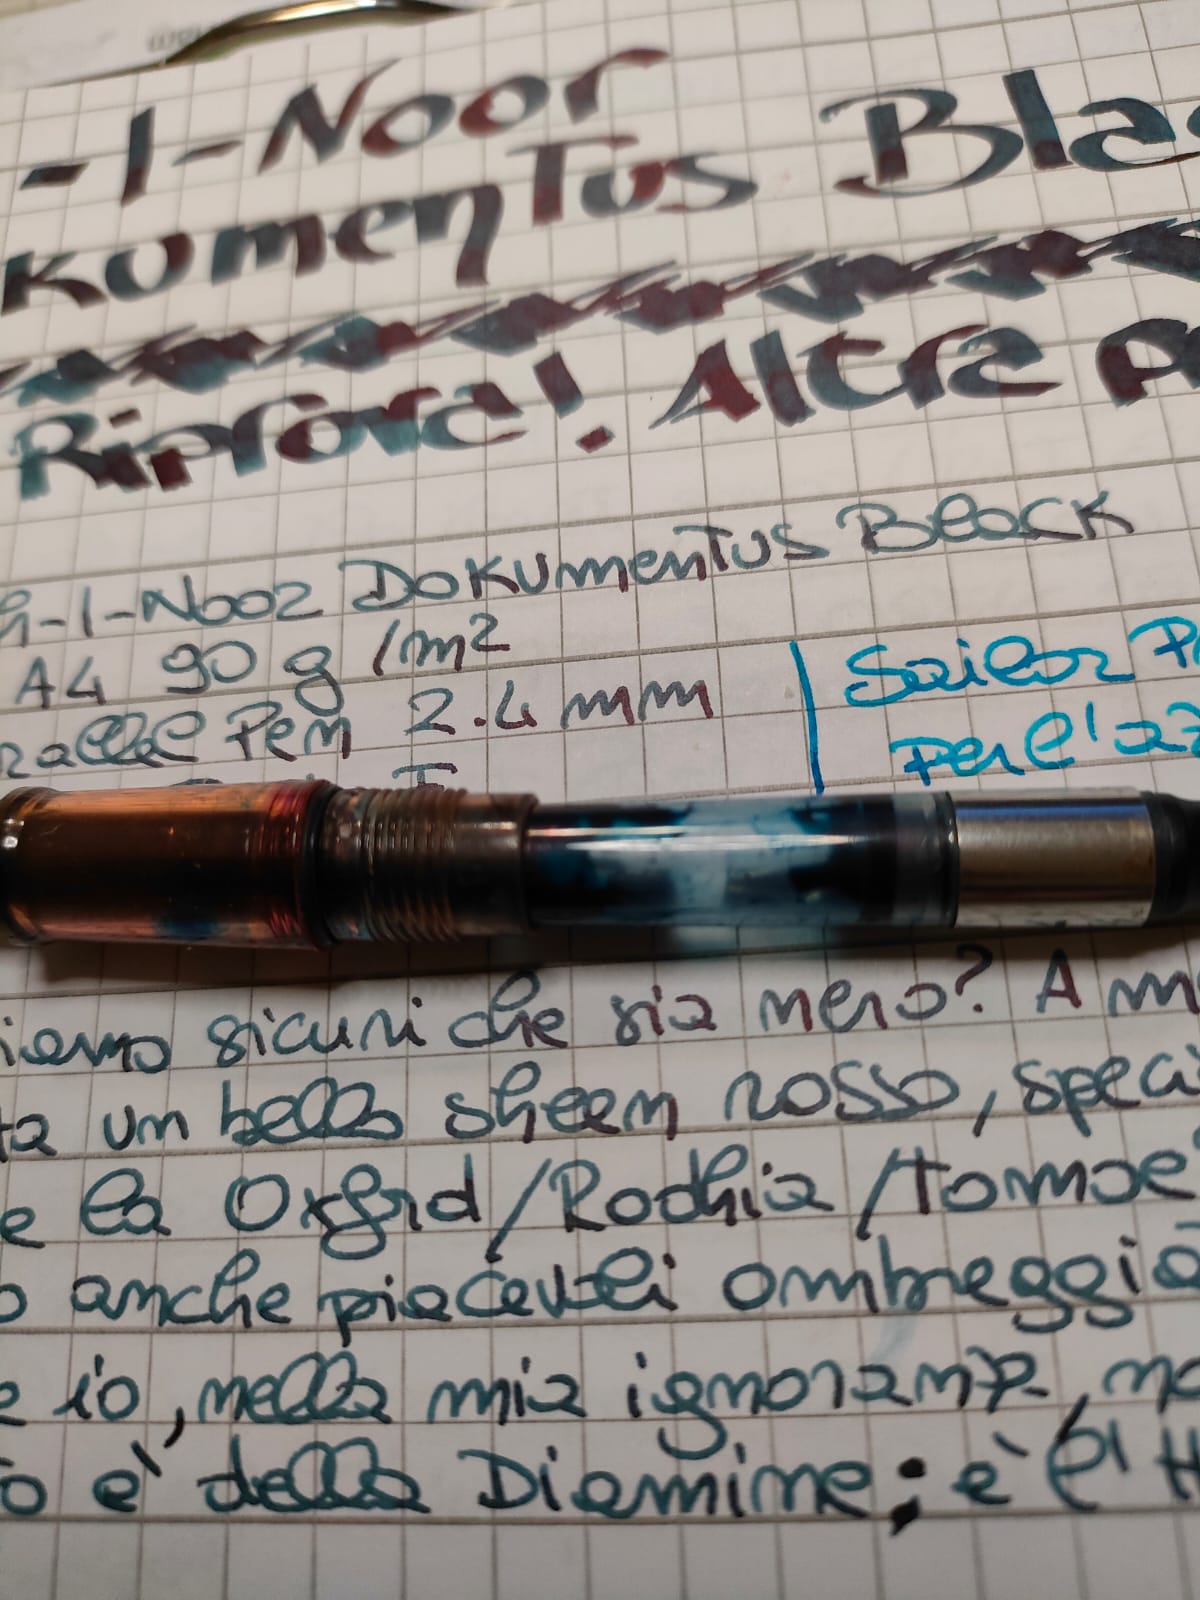 -I-Noor
kumentus Blac
Riprova! Altra
h-I-Noor Dokumentus Black
A4 90 g/m²
rallel Pen 2.4 mm
Sailor Pr
Per l'az
iamo sicuri che sia nero? A m
ta un bello sheen rosso, speci
e la Oxford/Rodhia/Tomoe
o anche piacevoli ombreggia
e io, nella mia ignoranza, no
o è della Diamine; è l'H